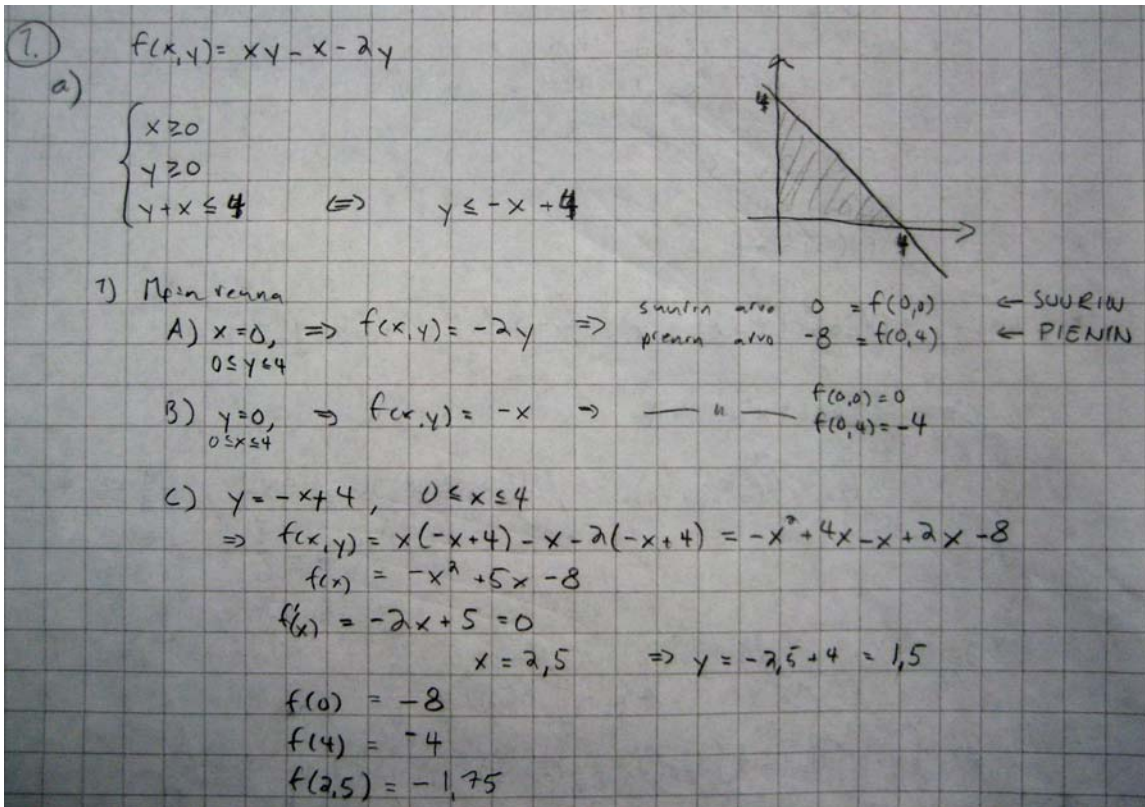 1.
f(x,y) = xy - x - 2y
a)
4
x ≥ 0
y ≥ 0
y + x ≤ 4 ⇔ y ≤ -x + 4
4
1) reuna
A) x = 0, ⇒ f(x,y) = -2y ⇒ suurin arvo 0 = f(0,0) ← SUURIN
0 ≤ y ≤ 4 pienin arvo -8 = f(0,4) ← PIENIN
B) y = 0, ⇒ f(x,y) = -x ⇒ — " — f(0,0) = 0
0 ≤ x ≤ 4 f(0,4) = -4
C) y = -x + 4, 0 ≤ x ≤ 4
⇒ f(x,y) = x(-x+4) - x - 2(-x+4) = -x² + 4x - x + 2x - 8
f(x) = -x² + 5x - 8
f'(x) = -2x + 5 = 0
x = 2,5 ⇒ y = -2,5 + 4 = 1,5
f(0) = -8
f(4) = -4
f(2,5) = -1,75